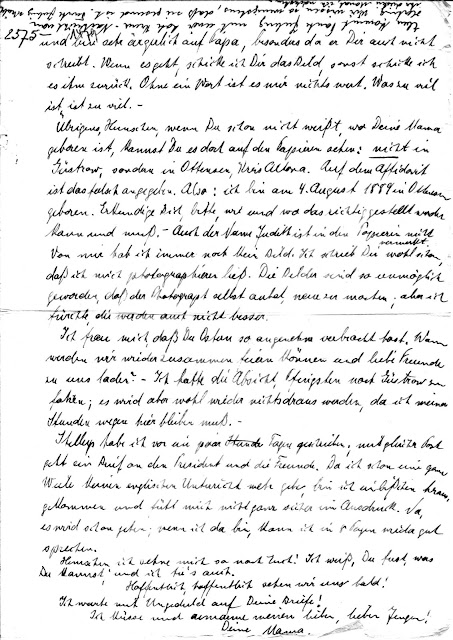 2575
und bin sehr ärgerlich auf Papa, besonders da er Dir auch nicht
schreibt. Wenn es geht, schicke ich Dir das Geld, sonst schicke ich
es ihm zurück. Ohne ein Wort ist es mir nichts wert. Was zu viel
ist, ist zu viel. -
Übrigens, Hänschen, wenn Du schon nicht weißt, wo Deine Mama
geboren ist, kannst Du es doch auf den Papieren sehen: nicht in
Güstrow, sondern in Ottensen, Kreis Altona. Auf dem Affidavit
ist das falsch angegeben. Also: ich bin am 4. August 1889 in Ottensen
geboren. Erkundige Dich, bitte, wie und wo das richtig gestellt werden
kann und muß. - Auch der Name Judith ist in den Papieren nicht
vermerkt.
Von mir hab ich immer noch kein Bild. Ich schrieb Dir wohl schon,
daß ich mich photographieren ließ. Die Bilder sind so unmöglich
geworden, daß der Photograph selbst anbot, neue zu machen; aber ich
fürchte die werden auch nicht besser.
Ich freue mich, daß Du Ostern so angenehm verbracht hast. Wann
werden wir wieder zusammen feiern können und liebe Freunde
zu uns laden? - Ich hatte die Absicht, Pfingsten nach Güstrow zu
fahren; es wird aber wohl wieder nichts draus werden, da ich meiner
Stunden wegen hier bleiben muß. -
habe ich vor ein paar Tagen geschrieben, mit gleicher Post
geht ein Brief an den President und die Freunde. Da ich schon eine ganze
Weile keinen englischen Unterricht mehr gebe, bin ich ein bißchen heraus-
gekommen und fühl mich nicht ganz sicher im Ausdruck. Na,
es wird schon gehen; wenn ich da bin, kann ich in 8 Tagen wieder gut
sprechen.
Hänschen, ich sehne mich so nach Euch! Ich weiß, Du tust, was
Du kannst und ich tu's auch.
Hoffentlich, hoffentlich sehen wir uns bald!
Ich warte mit Ungeduld auf Deine Briefe!
Ich küsse und umarme meinen lieben, lieben Jungen!
Deine Mama.